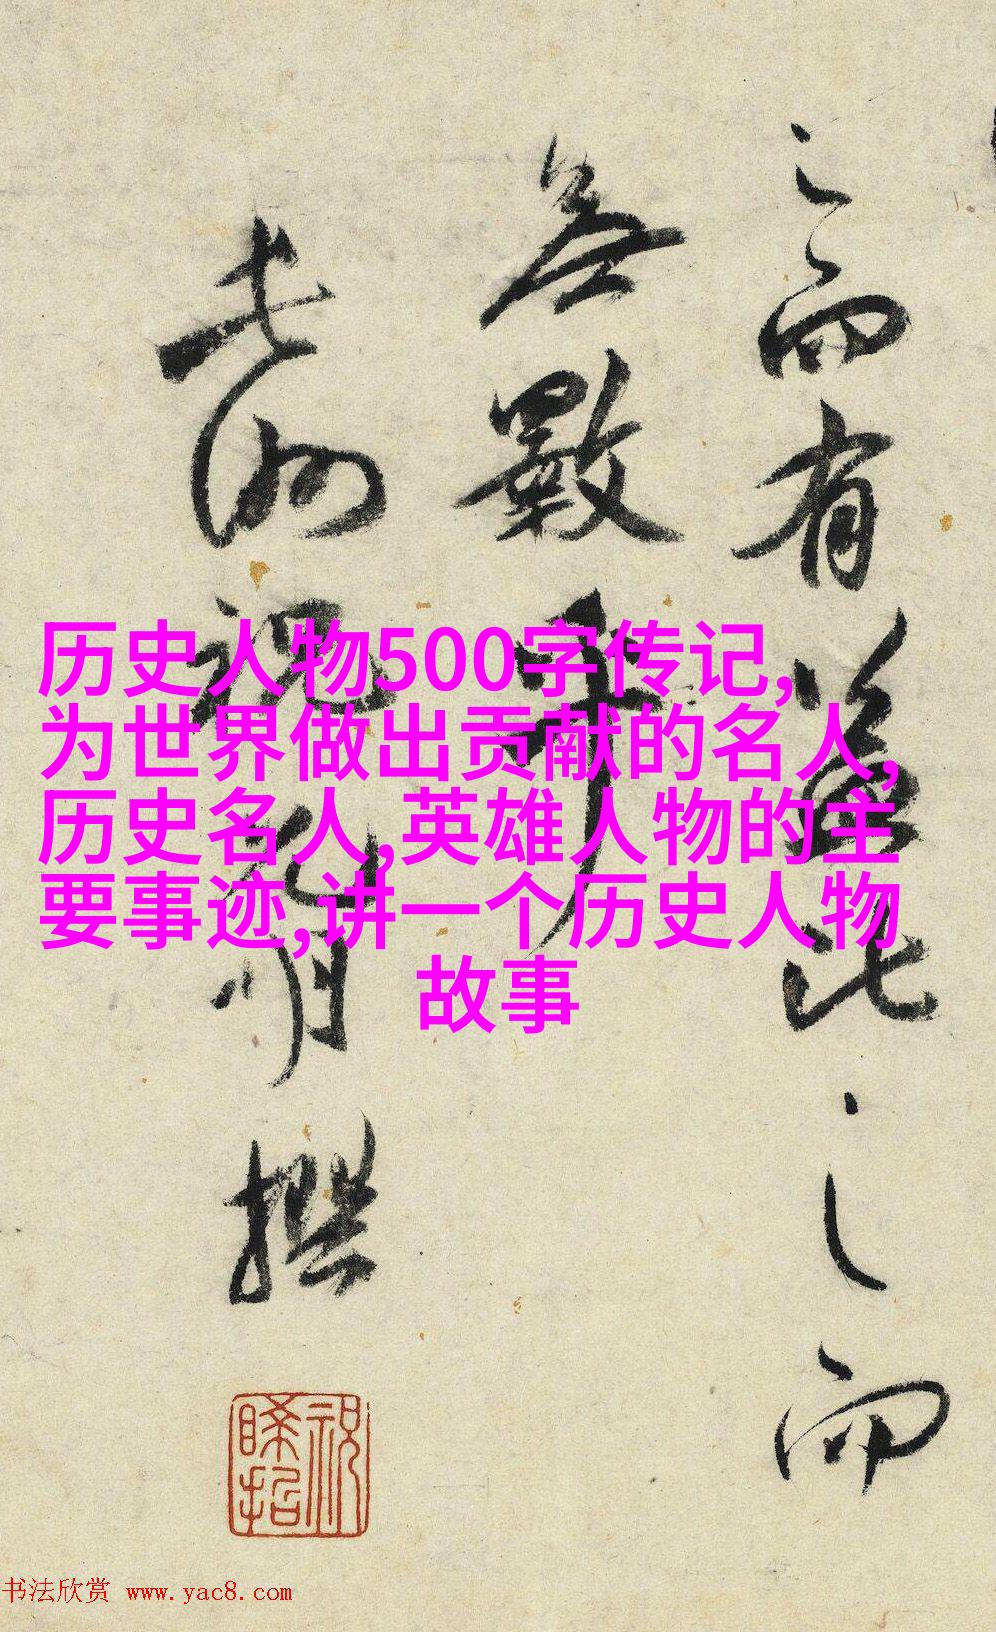 历史人物500字传记,
为世界做出贡献的名人,
历史名人,英雄人物的主
要事迹,讲一个历史人物
故事
之而有益比之而
無數
長洲祝允明撰
书法欣赏 www.yac8.com